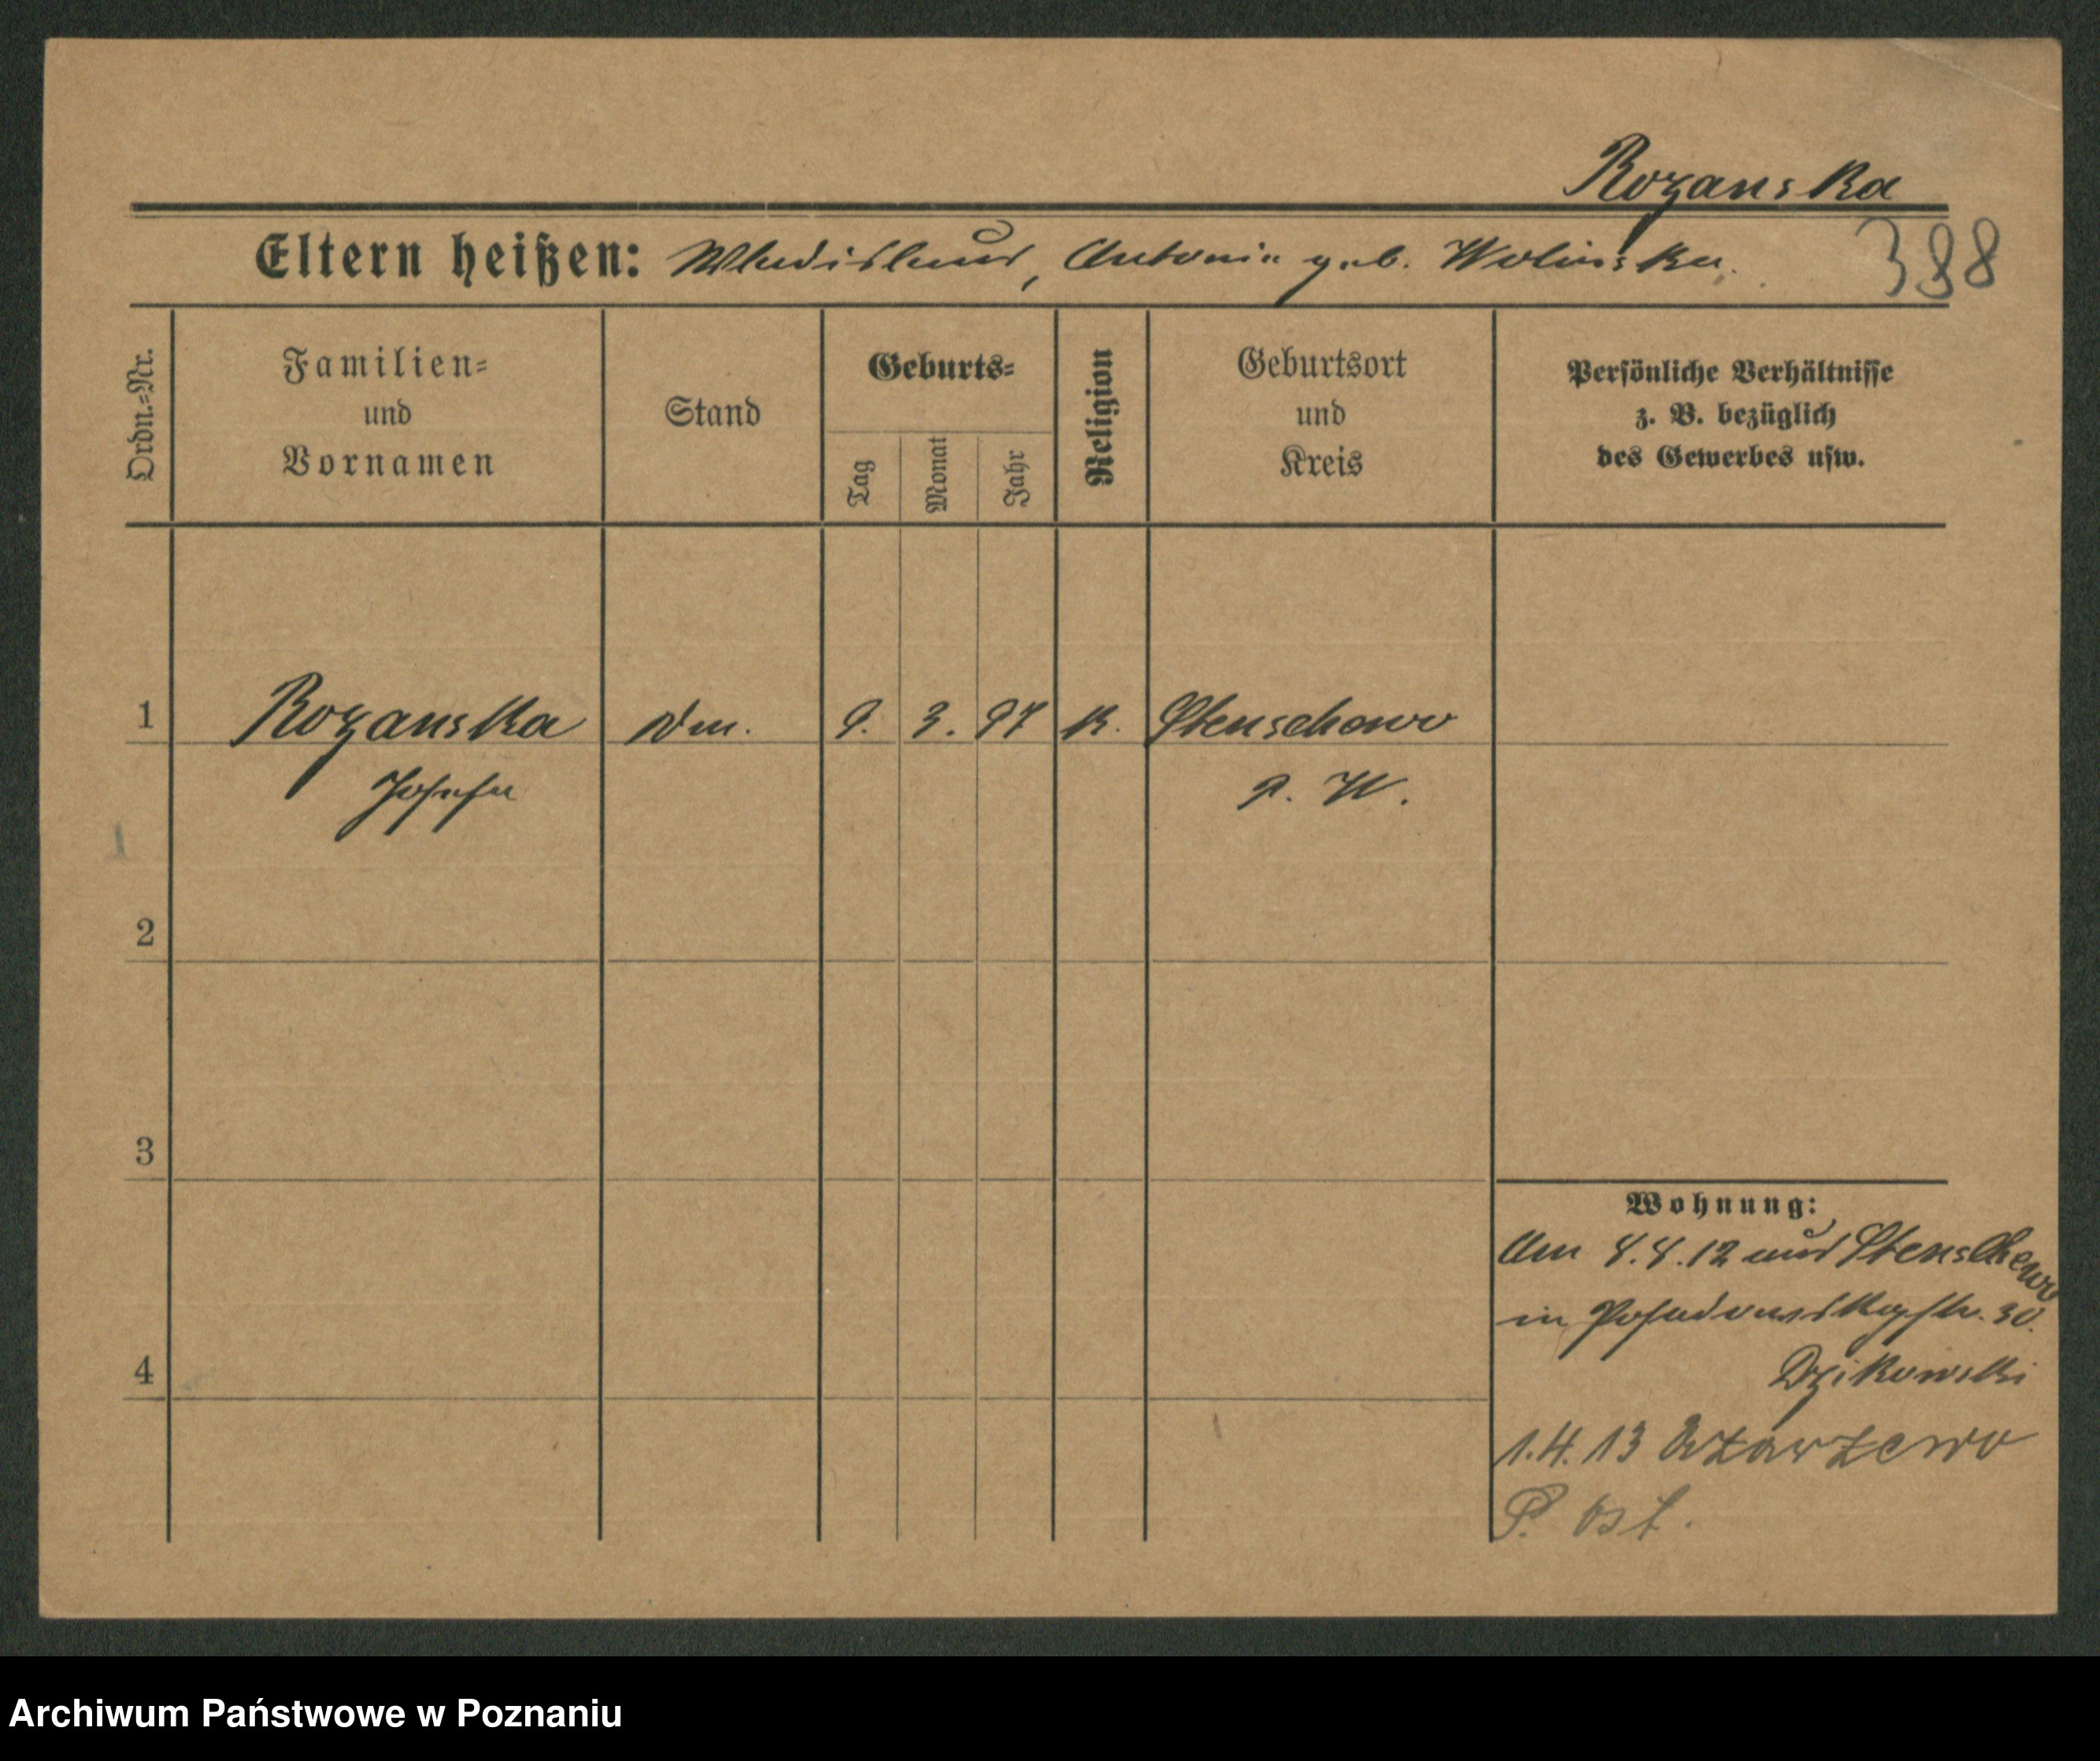 Rozanska
Eltern heißen: Wladislaus, Antonia geb. Wolinska.
388
Ordn.=Nr.
Familien=
und
Vornamen
Stand
Geburts=
Tag
Monat
Jahr
Religion
Geburtsort
und
Kreis
Persönliche Verhältnisse
z. B. bezüglich
des Gewerbes usw.
1 Rozanska 9. 3. 97 K. Stenschewo
Josefa P. W.
2
3
Wohnung:
Am 4.4.12 aus Stenschewo
in 30.
4
Dzikowski
1.4.13
P. Ost.
Archiwum Państwowe w Poznaniu